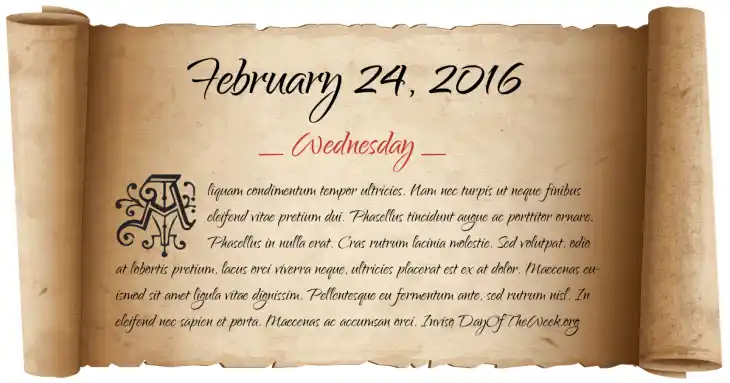 February 24, 2016
_ Wednesday _
Aliquam condimentum tempor ultricies. Nam nec turpis ut neque finibus
eleifend vitae pretium dui. Phasellus tincidunt augue ac porttitor ornare.
Phasellus in nulla erat. Cras rutrum lacinia molestie. Sed volutpat, odio
at lobortis pretium, lacus orci viverra neque, ultricies placerat est ex at dolor. Maecenas eu-
ismod sit amet ligula vitae dignissim. Pellentesque eu fermentum ante, sed rutrum nisl. In
eleifend nec sapien et porta. Maecenas ac accumsan orci. Inviso DayOfTheWeek.org